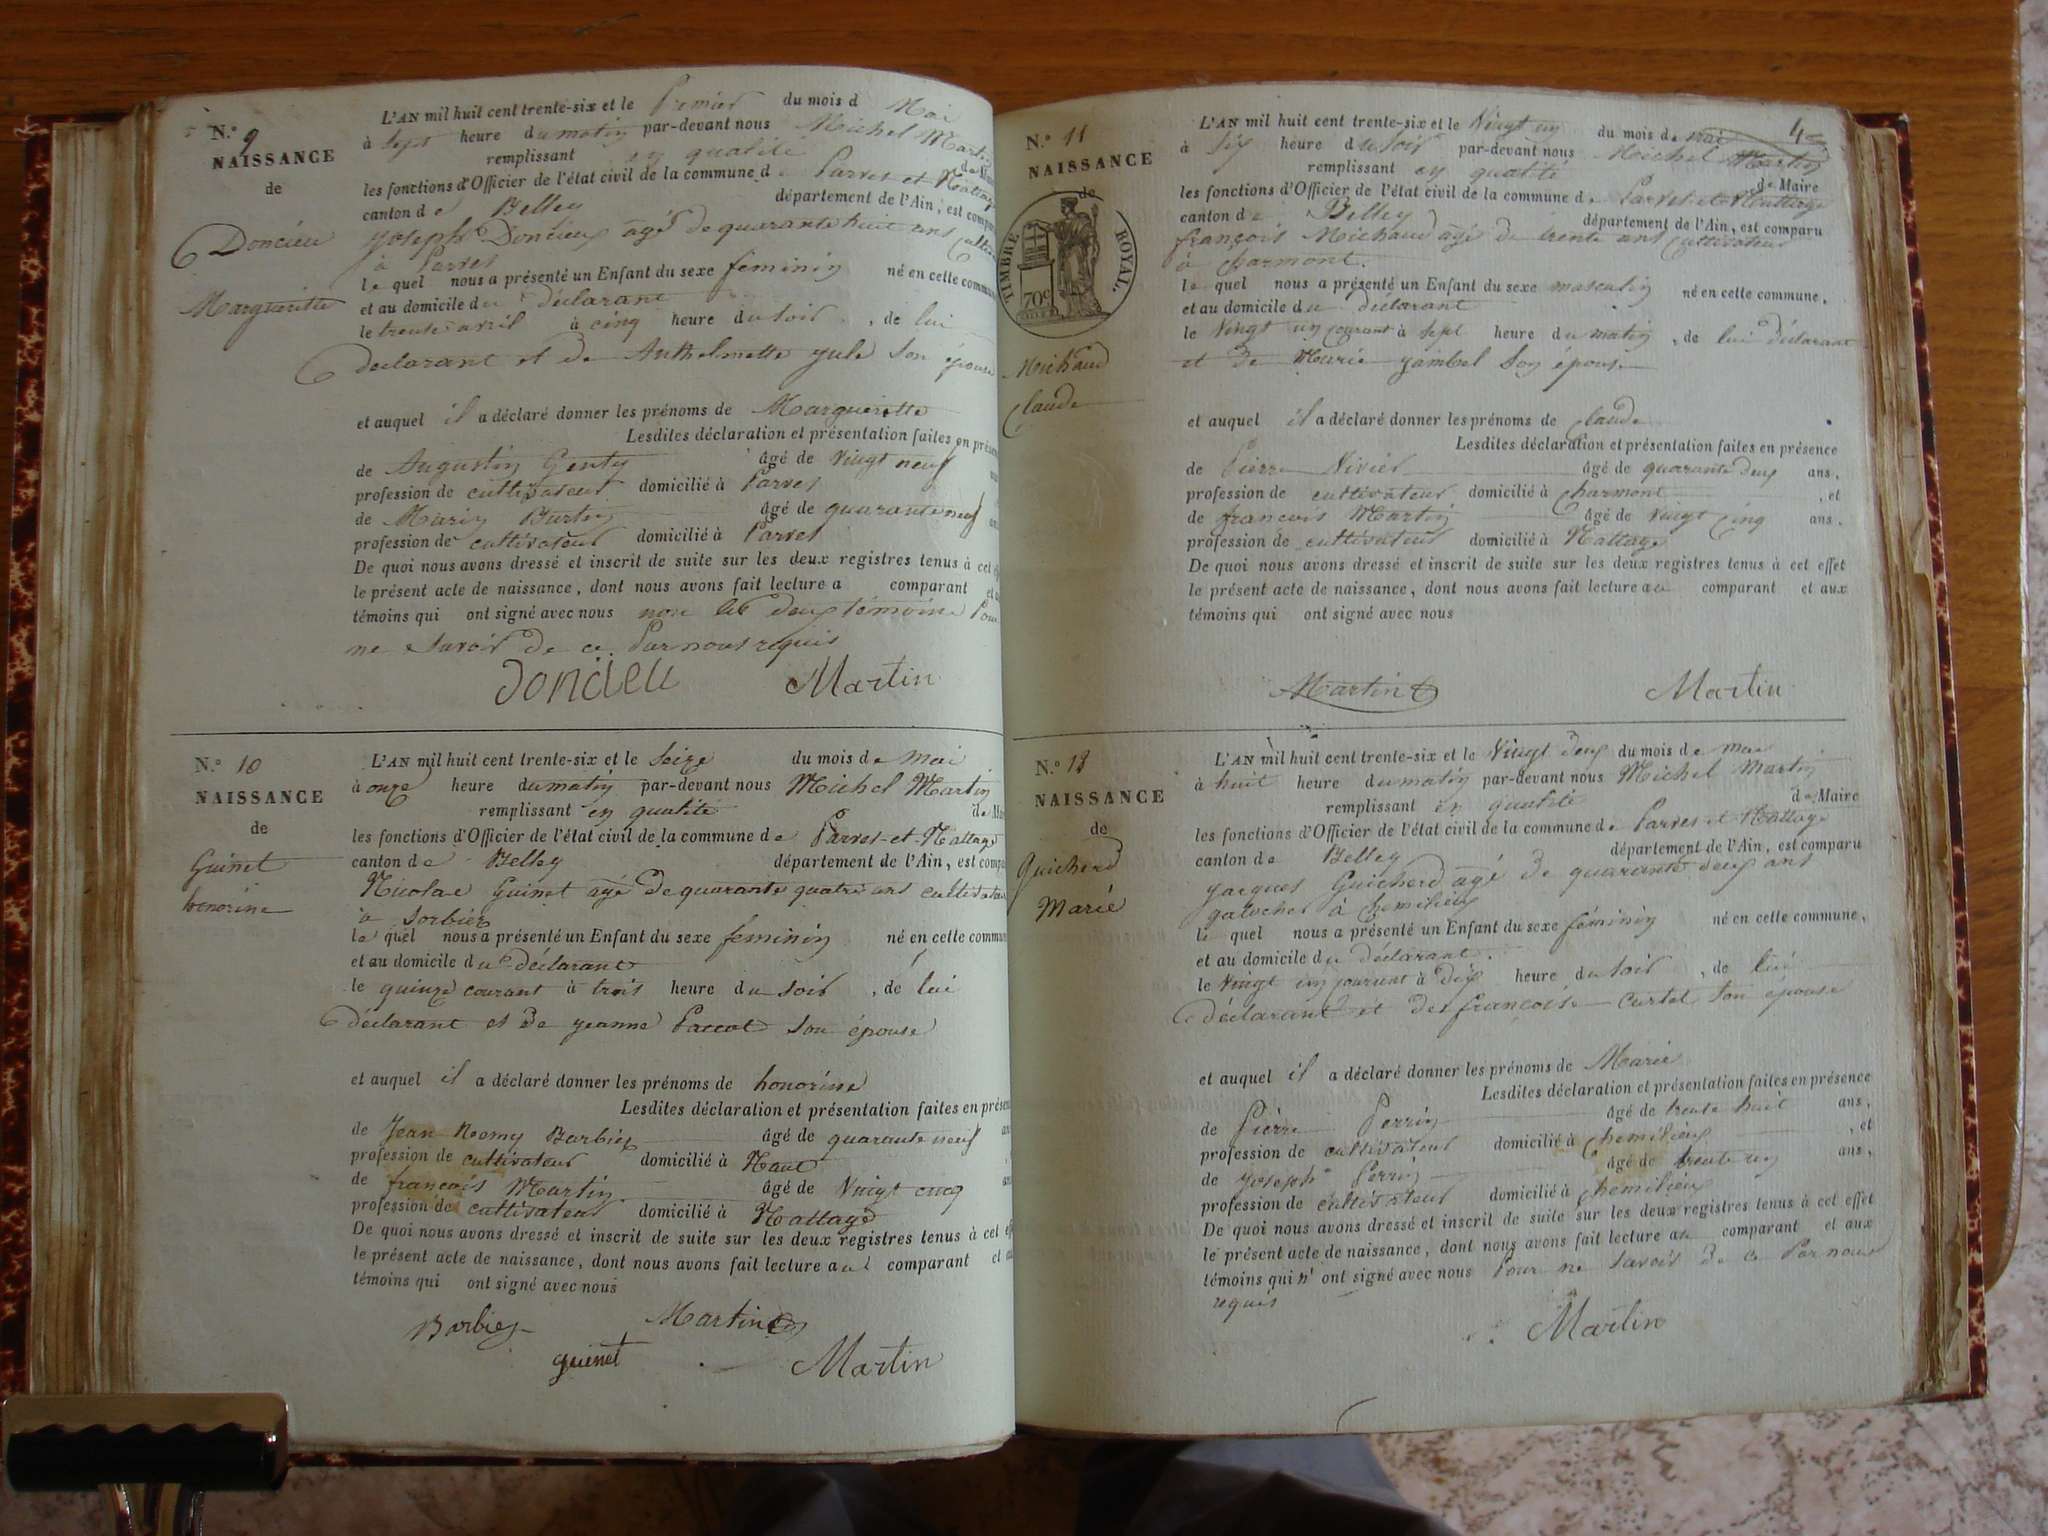 N.° 9
NAISSANCE
de
Doncieu
Margueritte
L'AN mil huit cent trente-six et le Premier du mois d Mai
à sept heure du matin par-devant nous Michel Martin
remplissant en qualité
les fonctions d'Officier de l'état civil de la commune d Parves et Nattage
canton de Belley département de l'Ain, est comparu
joseph Doncieux agé de quarante huit ans
à Parves
le quel nous a présenté un Enfant du sexe feminin né en cette commune
et au domicile du déclarant
le trente avril à cinq heure du soir, de lui
declarant et de Anthelmette jule son épouse
et auquel il a déclaré donner les prénoms de Margueritte
Lesdites déclaration et présentation faites en présence
de Augustin Genty âgé de Vingt neuf
profession de cultivateur domicilié à Parves
de Marin Burtin âgé de quarante neuf
profession de cultivateur domicilié à Parves
De quoi nous avons dressé et inscrit de suite sur les deux registres tenus à cet
le présent acte de naissance, dont nous avons fait lecture a comparant et
témoins qui ont signé avec nous non les deux témoins Pour
ne savoir de ce Par nous requis
Doncieu Martin
N.° 10
NAISSANCE
de
Guinet
honorine
L'AN mil huit cent trente-six et le seize du mois de mai
à onze heure du matin par-devant nous Michel Martin
remplissant en qualité de
les fonctions d'Officier de l'état civil de la commune de Parves et Nattage
canton de Belley département de l'Ain, est
Nicolas Guinet agé de quarante quatre ans cultivateur
à Sorbier
le quel nous a présenté un Enfant du sexe feminin né en cette
et au domicile du déclarant
le quinze courant à trois heure du soir, de lui
déclarant et de jeanne Paccot son épouse
et auquel il a déclaré donner les prénoms de honorine
Lesdites déclaration et présentation faites en
de Jean Remy Barbier âgé de quarante neuf
profession de cultivateur domicilié à Nant
de françois Martin âgé de Vingt cinq
profession de cultivateur domicilié à Nattage
De quoi nous avons dressé et inscrit de suite sur les deux registres tenus à cet
le présent acte de naissance, dont nous avons fait lecture au comparant et
témoins qui ont signé avec nous
Barbier Martin
guinet Martin
4
N.° 11
NAISSANCE
de
TIMBRE ROYAL
70c
Michaud
Claude
L'AN mil huit cent trente-six et le Vingt un du mois de mai
à six heure du soir par-devant nous Michel Martin
remplissant en qualité de Maire
les fonctions d'Officier de l'état civil de la commune d. Parves et Nattage
canton de Belley département de l'Ain, est comparu
françois Michaud agé de trente ans cultivateur
à Charmont.
le quel nous a présenté un Enfant du sexe masculin né en cette commune,
et au domicile du déclarant
le Vingt un courant à sept heure du matin, de lui déclarant
et de Marie jambel son épouse
et auquel il a déclaré donner les prénoms de Claude
Lesdites déclaration et présentation faites en présence
de Pierre Vivier âgé de quarante deux ans,
profession de cultivateur domicilié à Charmont, et
de francois Martin âgé de Vingt cinq ans,
profession de cultivateur domicilié à Nattage
De quoi nous avons dressé et inscrit de suite sur les deux registres tenus à cet effet
le présent acte de naissance, dont nous avons fait lecture au comparant et aux
témoins qui ont signé avec nous
Martin Martin
N.°
NAISSANCE
de
Guicherd
Marie
L'AN mil huit cent trente-six et le Vingt deux du mois de mai
à huit heure du matin par-devant nous Michel Martin
remplissant en qualité de Maire
les fonctions d'Officier de l'état civil de la commune de Parves et Nattage
canton de Belley département de l'Ain, est comparu
jacques Guicherd agé de quarante deux ans
galocher à Chemilieu
le quel nous a présenté un Enfant du sexe féminin né en cette commune,
et au domicile du déclarant.
le Vingt un courant à dix heure du soir, de lui
déclarant et de françoise Curtet son epouse
et auquel il a déclaré donner les prénoms de Marie
Lesdites déclaration et présentation faites en présence
de Pierre Perrin âgé de trente huit ans,
profession de cultivateur domicilié à Chemilieu, et
de joseph Perrin âgé de trente un ans,
profession de cultivateur domicilié à Chemilieu
De quoi nous avons dressé et inscrit de suite sur les deux registres tenus à cet effet
le présent acte de naissance, dont nous avons fait lecture au comparant et aux
témoins qui n'ont signé avec nous Pour ne savoir de ce Par nous
requis
Martin